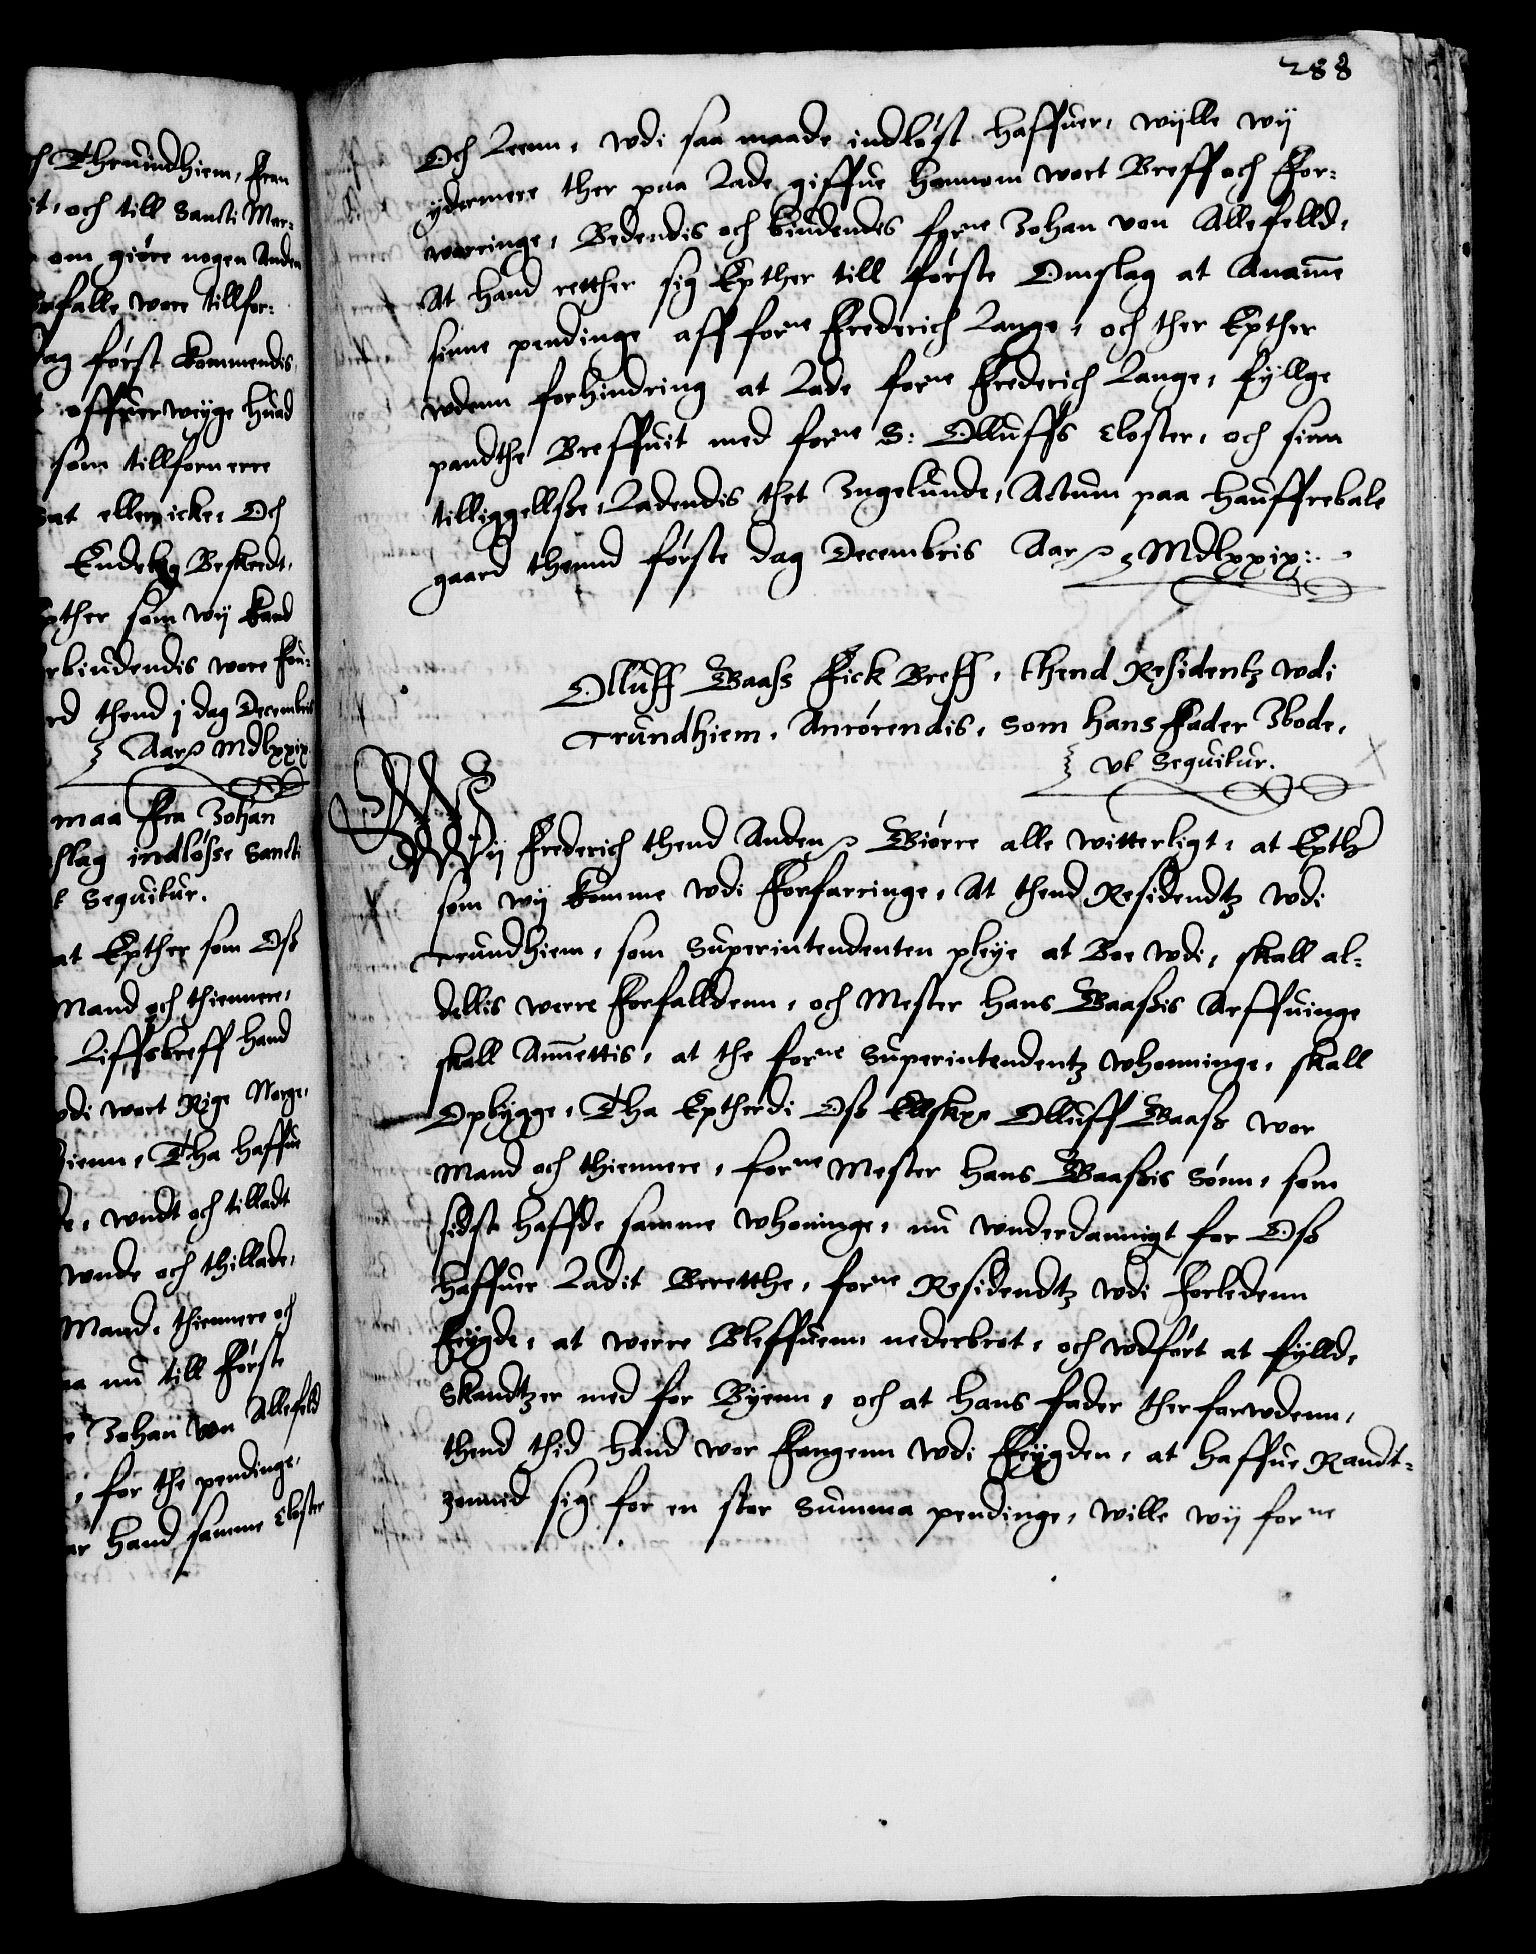 288
Och Leenn, wdi saa maade indløst haffuer, wylle wy
ydermere ther paa Lade giffue honnom wort Breff och For-
warringe, Bedendis och biudendes forne Johan von Allefelld,
At hand retther sig Epther till første Omslag at Anamme
sinne pendinge aff forne Frederich Lange, och ther Epther
wdenn forhindring at Lade forne Frederich Lange, fyllge
pandthe Breffuit med forne S: Olluffs Closter, och sinn
tilliggellsse, Ladendis thet Jngelunde, Actum paa hauffrebale
gaard thennd første dag Decembris Aar Mdlxxix
Olluff Baass Fick Breff, thend Residentz wdi
Trundhiem, Anrørendis, som hans Fader Jbode,
vt Sequitur.
Wij Frederich thend Anden Giørre alle witterligt, at Epther
som wy komme wdi Forfarringe, At thend Residendtz wdi
Trundhiem, som Superintendenten pleye at Boe wdi, skall al-
dellis werre Forfalldenn, och Mester Hans Baassis Arffuinge
skall Anmettis, at the forne Superintendentz whonninge, skall
Opbygge, Tha Eptherdi Oss Ellske Olluff Baass wor
Mand och thiennere, forne Mester Hans Baassis Sønn, som
sidst haffde samme whoninge, nu wnderdannigt for Oss
haffuer Ladit Beretthe, forne Residendtz wdi Forledenn
Feygde, at werre Bleffuenn nederbrot, och wdført at fylld,
Skandtzer med for Byenn, och at hans fader ther forwdenn,
thend thid hand wor Fangenn wdi Feygden, at haffue Randt-
zonnid sig for en stor Summa pendinge, wille wy forne
Thruindhiem, Fran
it, och till Sancti Mar-
om giøre nogen Anden
falle wore tillfor-
ag først kommendis,
offuerweyge huad
som tillfornerre
at eller icke, Och
Endelig Beskeedt,
pther som wy kand
rbiudendis wore Fou-
rd thend j dag Decembris
Aar Mdlxxix
maa Fra Johan
slag indløsse Sancti
t Sequitur.
at Epther som Oss
Mand och thiennere,
Liffsbreff hand
wdi wort Rige Norge,
hienn, Tha haffue
e, wndt och tilladt
wnde och thillade,
Mand, thiennere och
aa nu till Første
e Johan von Allefeld
, for the pendinge,
ar hand samme Closter